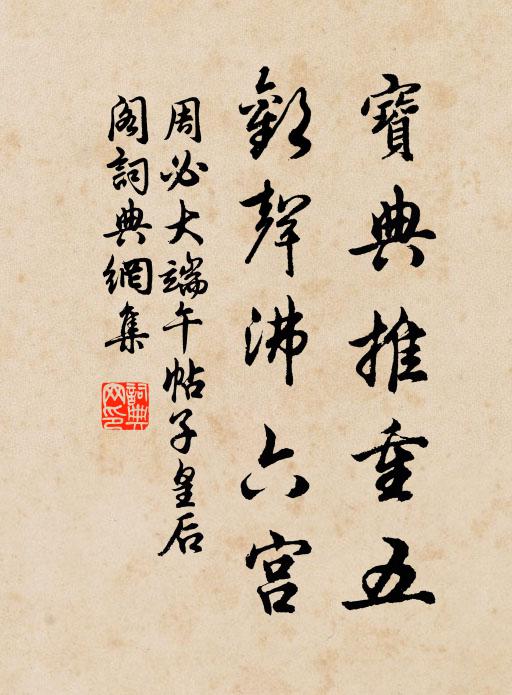 寶典推重五
歡聲沸六宮
周必大端午帖子皇后
閣詞典網集
詞典网印